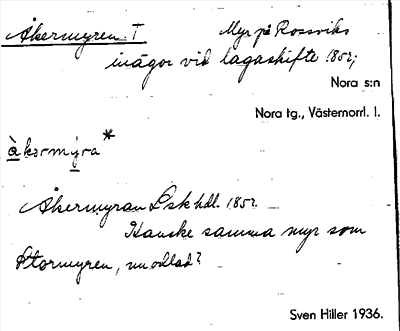 Åkermyren. T Myr på Rossviks
inägor vid lagaskifte 1852;
Nora s:n
Nora tg., Västernorrl. l.
àkərmy̱ra*
Åkermyran Lsk hdl. 1852.
Kanske samma myr som
Stormyren, nu odlad?
Sven Hiller 1936.